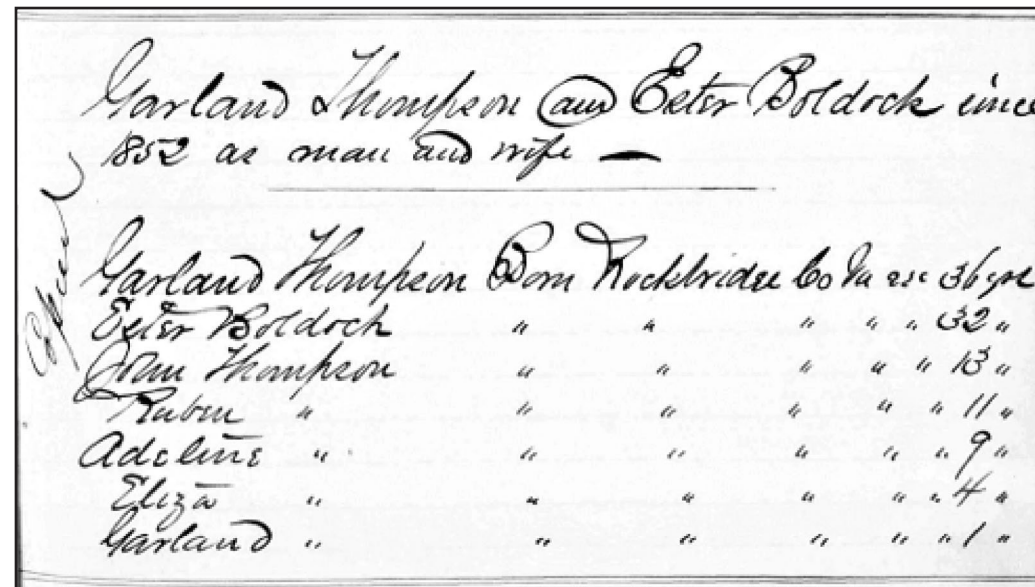 Garland Thompson and Exter Boldock since
1852 as man and wife —
Garland Thompson Born Rockbridge Co Va age 36 yrs
Exter Boldock " " " " " 32 "
John Thompson " " " " " 13 "
Ruben " " " " " " 11 "
Adeline " " " " " " 9 "
Eliza " " " " " " 4 "
Garland " " " " " " 1 "